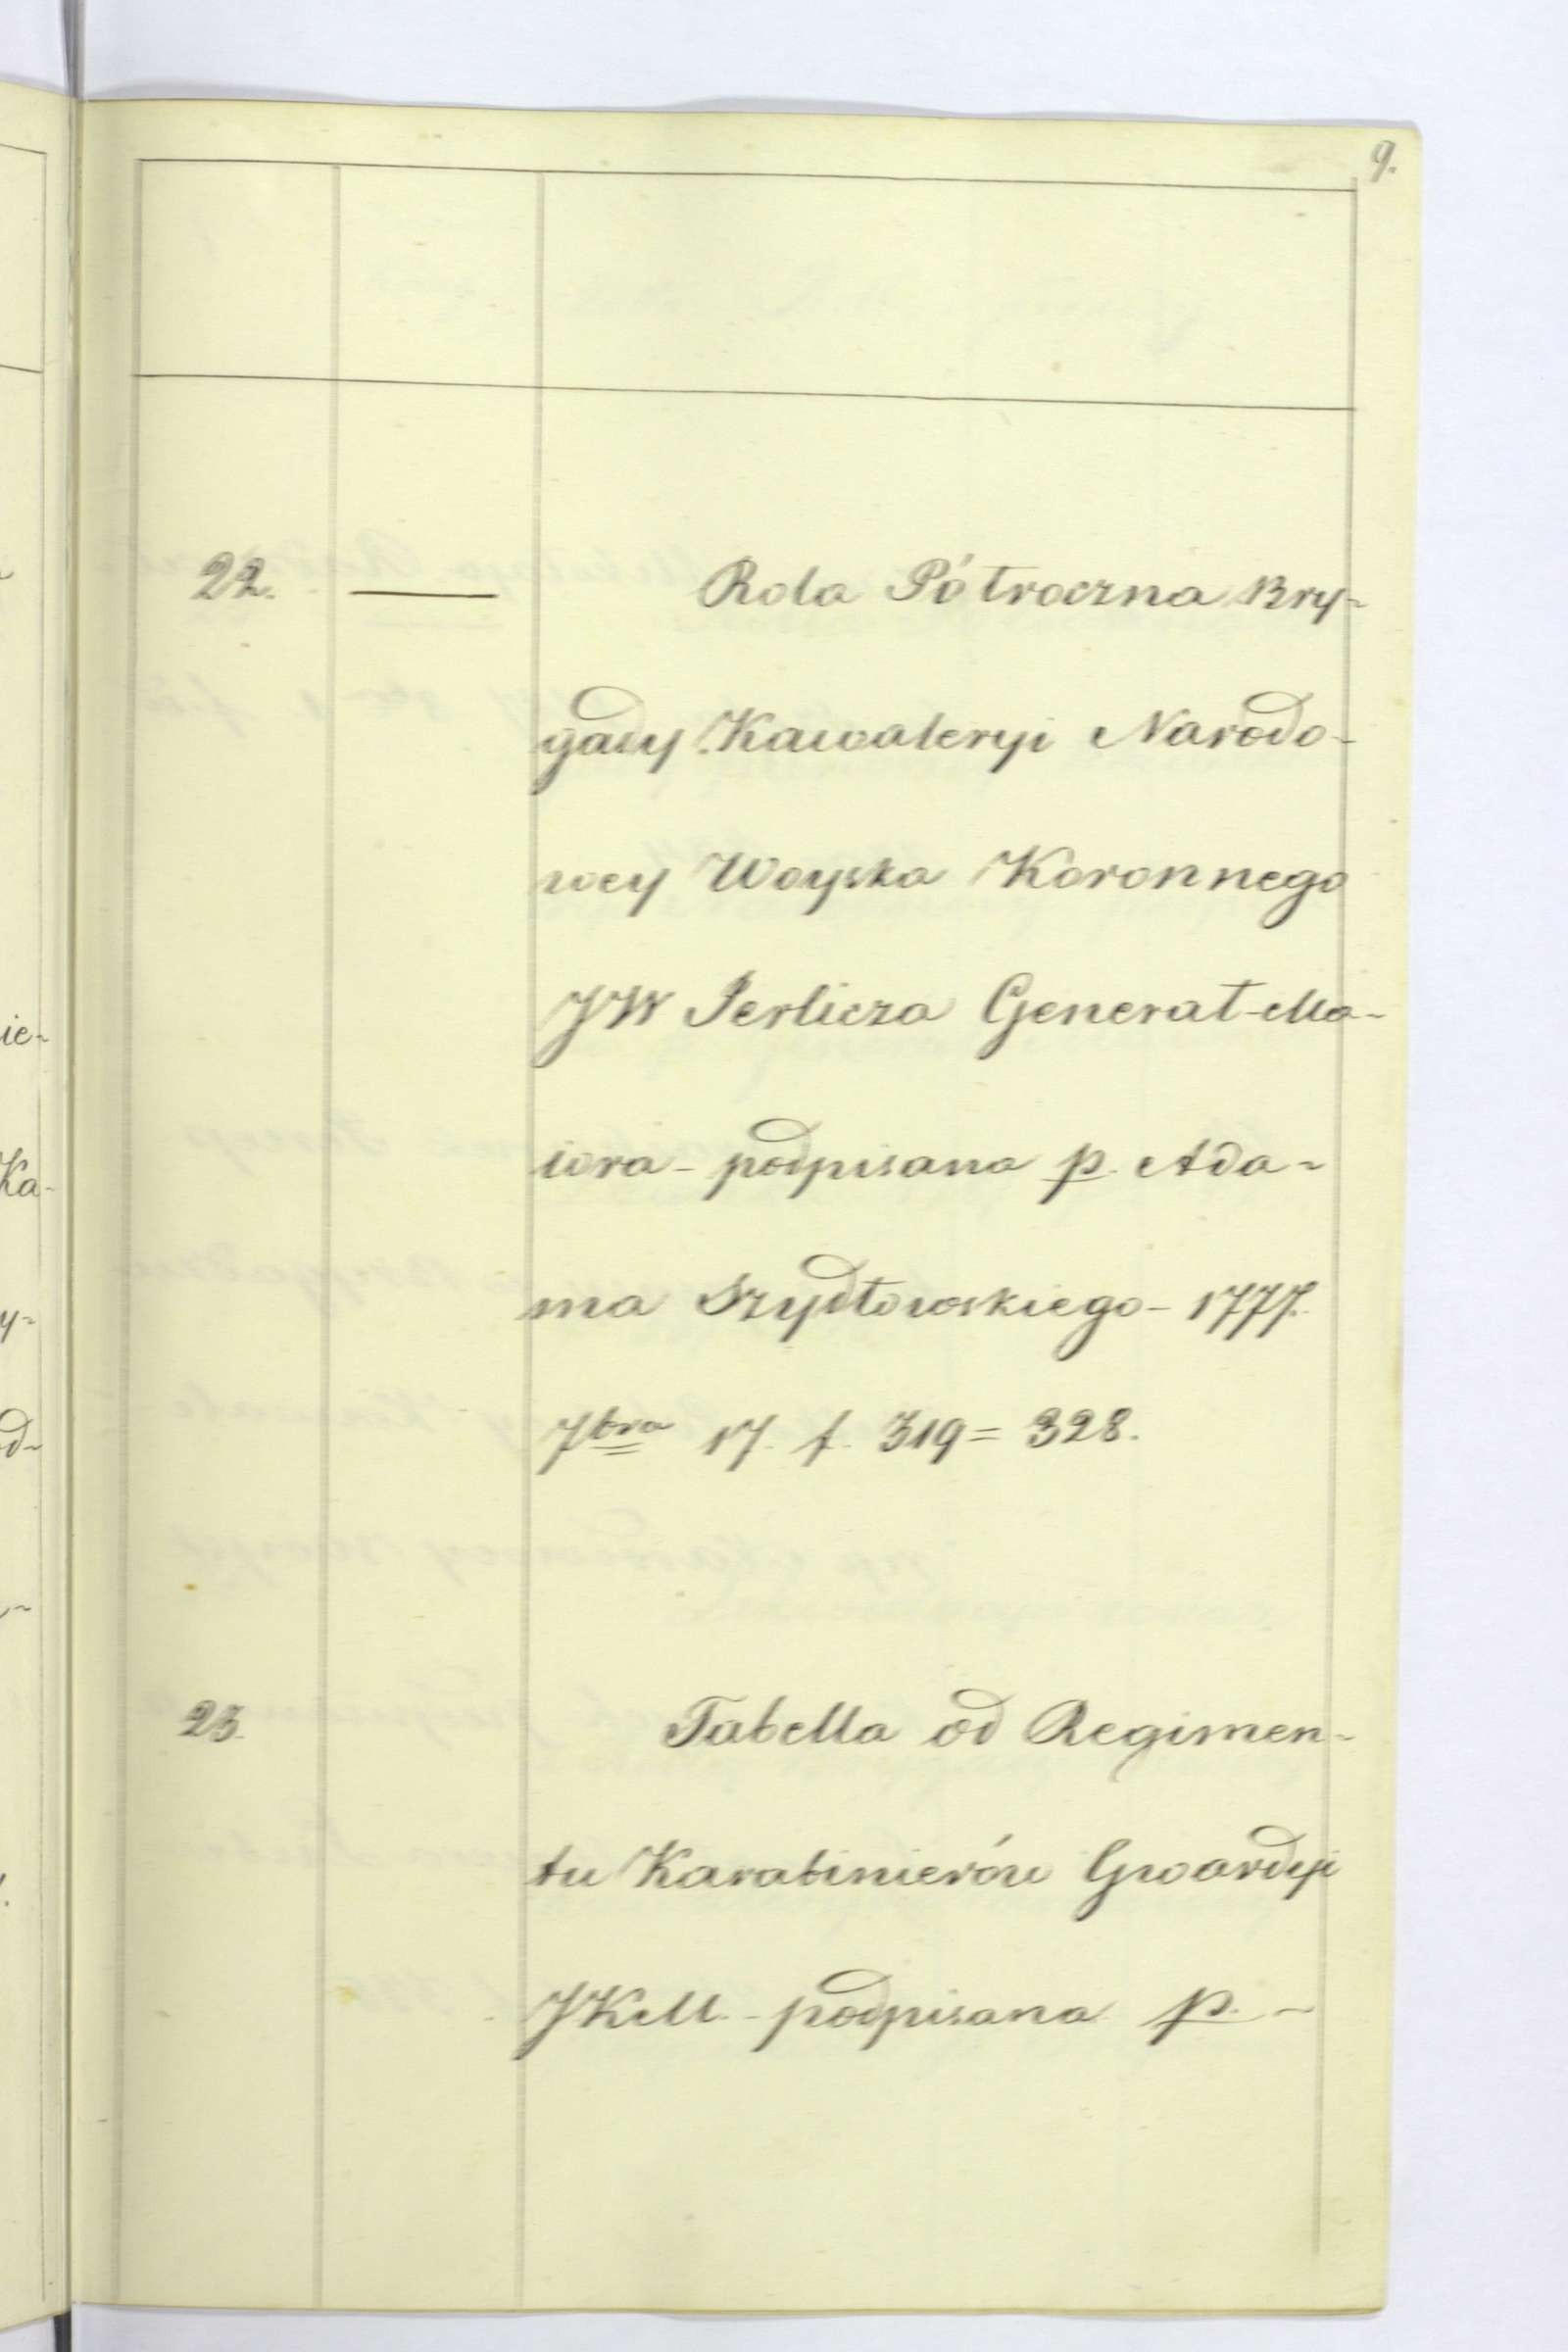 9.
22. — Rola Półroczna Bry-
gady Kawaleryi Narodo-
wey Woyska Koronnego
JW Jerlicza Generał-Ma-
iora - podpisana p. Ada-
ma Szydłowskiego - 1777.
7bra 17. f. 319 = 328.
23. Tabella od Regimen-
tu Karabinierów Gwardyi
JKM. - podpisana p. -
ie-
Ka-
y-
d-